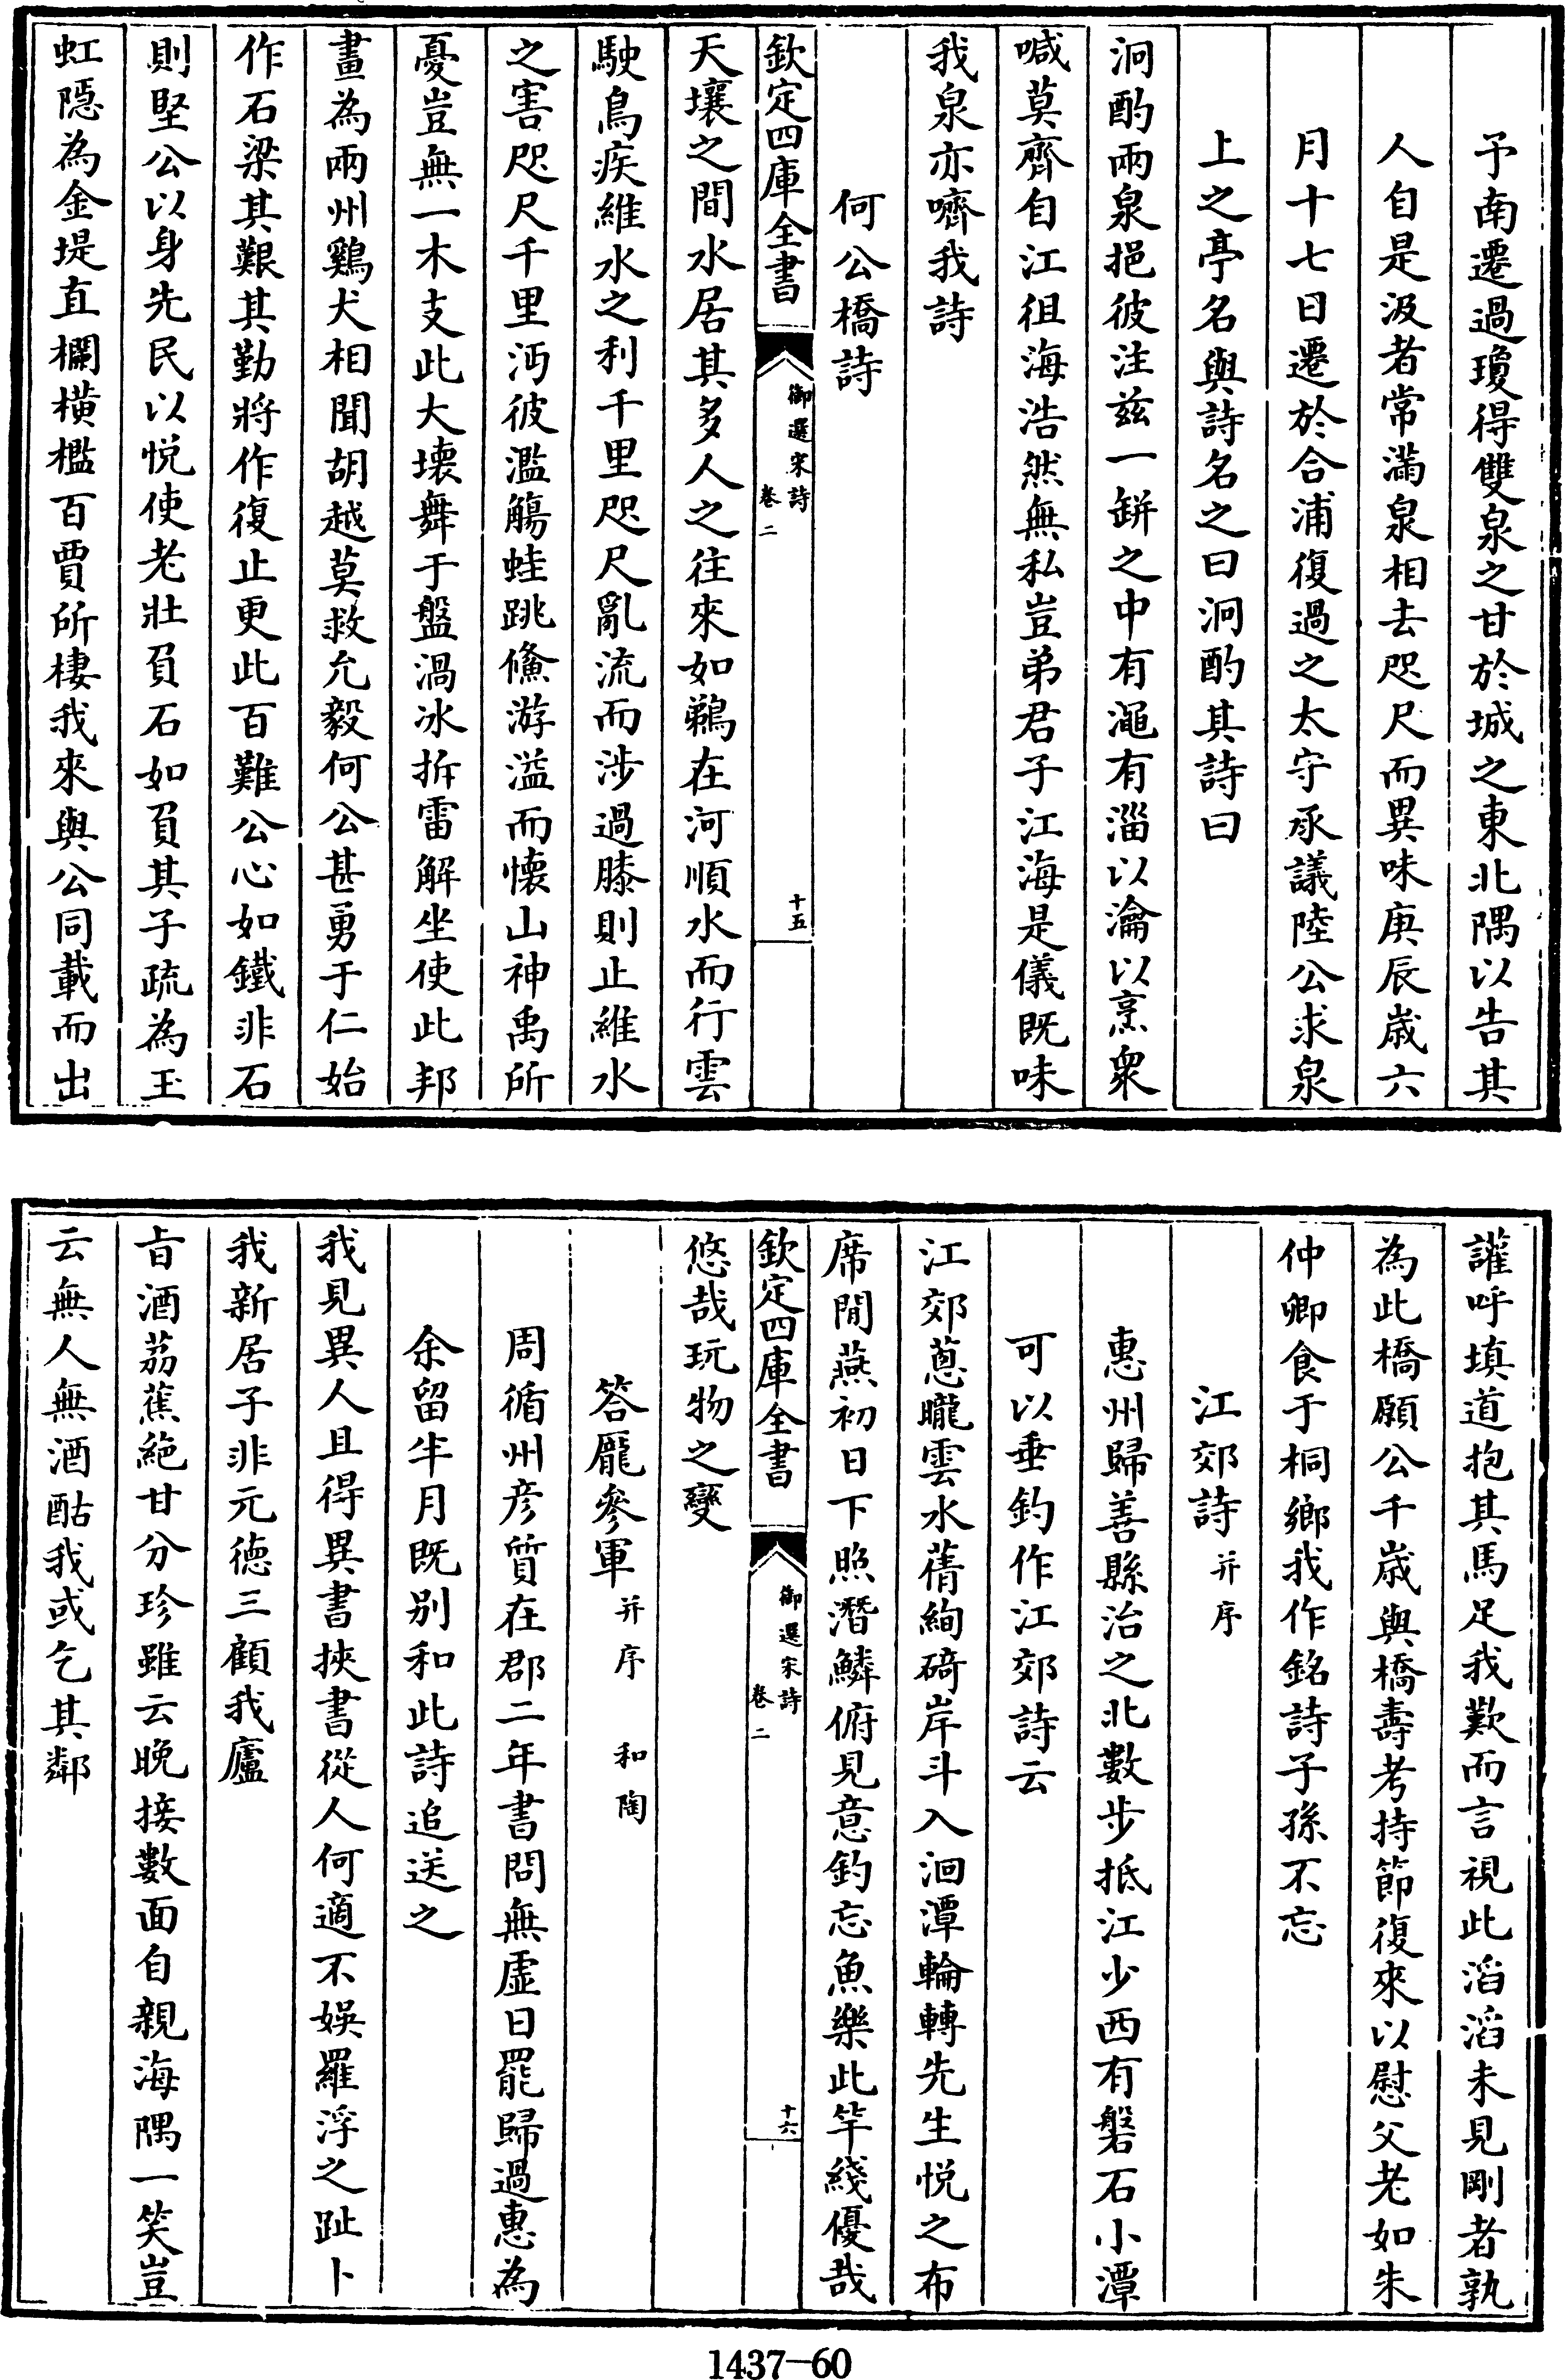 予南遷過瓊得雙泉之甘於城之東北隅以告其
人自是汲者常滿泉相去咫尺而異味庚辰歲六
月十七日遷於合浦復過之太守承議陸公求泉
上之亭名與詩名之曰泂酌其詩曰
泂酌兩泉挹彼注茲一缾之中有澠有淄以瀹以烹衆
喊莫齊自江徂海浩然無私豈弟君子江海是儀既味
我泉亦嚌我詩
何公橋詩
欽定四庫全書
御選宋詩
卷二
十五
天壤之間水居其多人之往來如鵜在河順水而行雲
駛鳥疾維水之利千里咫尺亂流而涉過膝則止維水
之害咫尺千里沔彼濫觴蛙跳鯈游溢而懷山神禹所
憂豈無一木支此大壞舞于盤渦冰拆雷解坐使此邦
畫為兩州鷄犬相聞胡越莫救允毅何公甚勇于仁始
作石梁其艱其勤將作復止更此百難公心如鐵非石
則堅公以身先民以悅使老壯負石如負其子疏為玉
虹隱為金堤直欄橫檻百賈所棲我來與公同載而出
讙呼填道抱其馬足我歎而言視此滔滔未見剛者孰
為此橋願公千歲與橋壽考持節復來以慰父老如朱
仲卿食于桐鄉我作銘詩子孫不忘
江郊詩并序
惠州歸善縣治之北數步抵江少西有磐石小潭
可以垂釣作江郊詩云
江郊蔥曨雲水蒨絢碕岸斗入洄潭輪轉先生悅之布
席閒燕初日下照潛鱗俯見意釣忘魚樂此竿綫優哉
欽定四庫全書
御選宋詩
卷二
十六
悠哉玩物之變
答龎參軍并序 和陶
周循州彦質在郡二年書問無虛日罷歸過惠為
余留半月既别和此詩追送之
我見異人且得異書挾書從人何適不娛羅浮之趾卜
我新居子非元德三顧我廬
旨酒荔蕉絕甘分珍雖云晚接數面自親海隅一笑豈
云無人無酒酤我或乞其鄰
1437—60